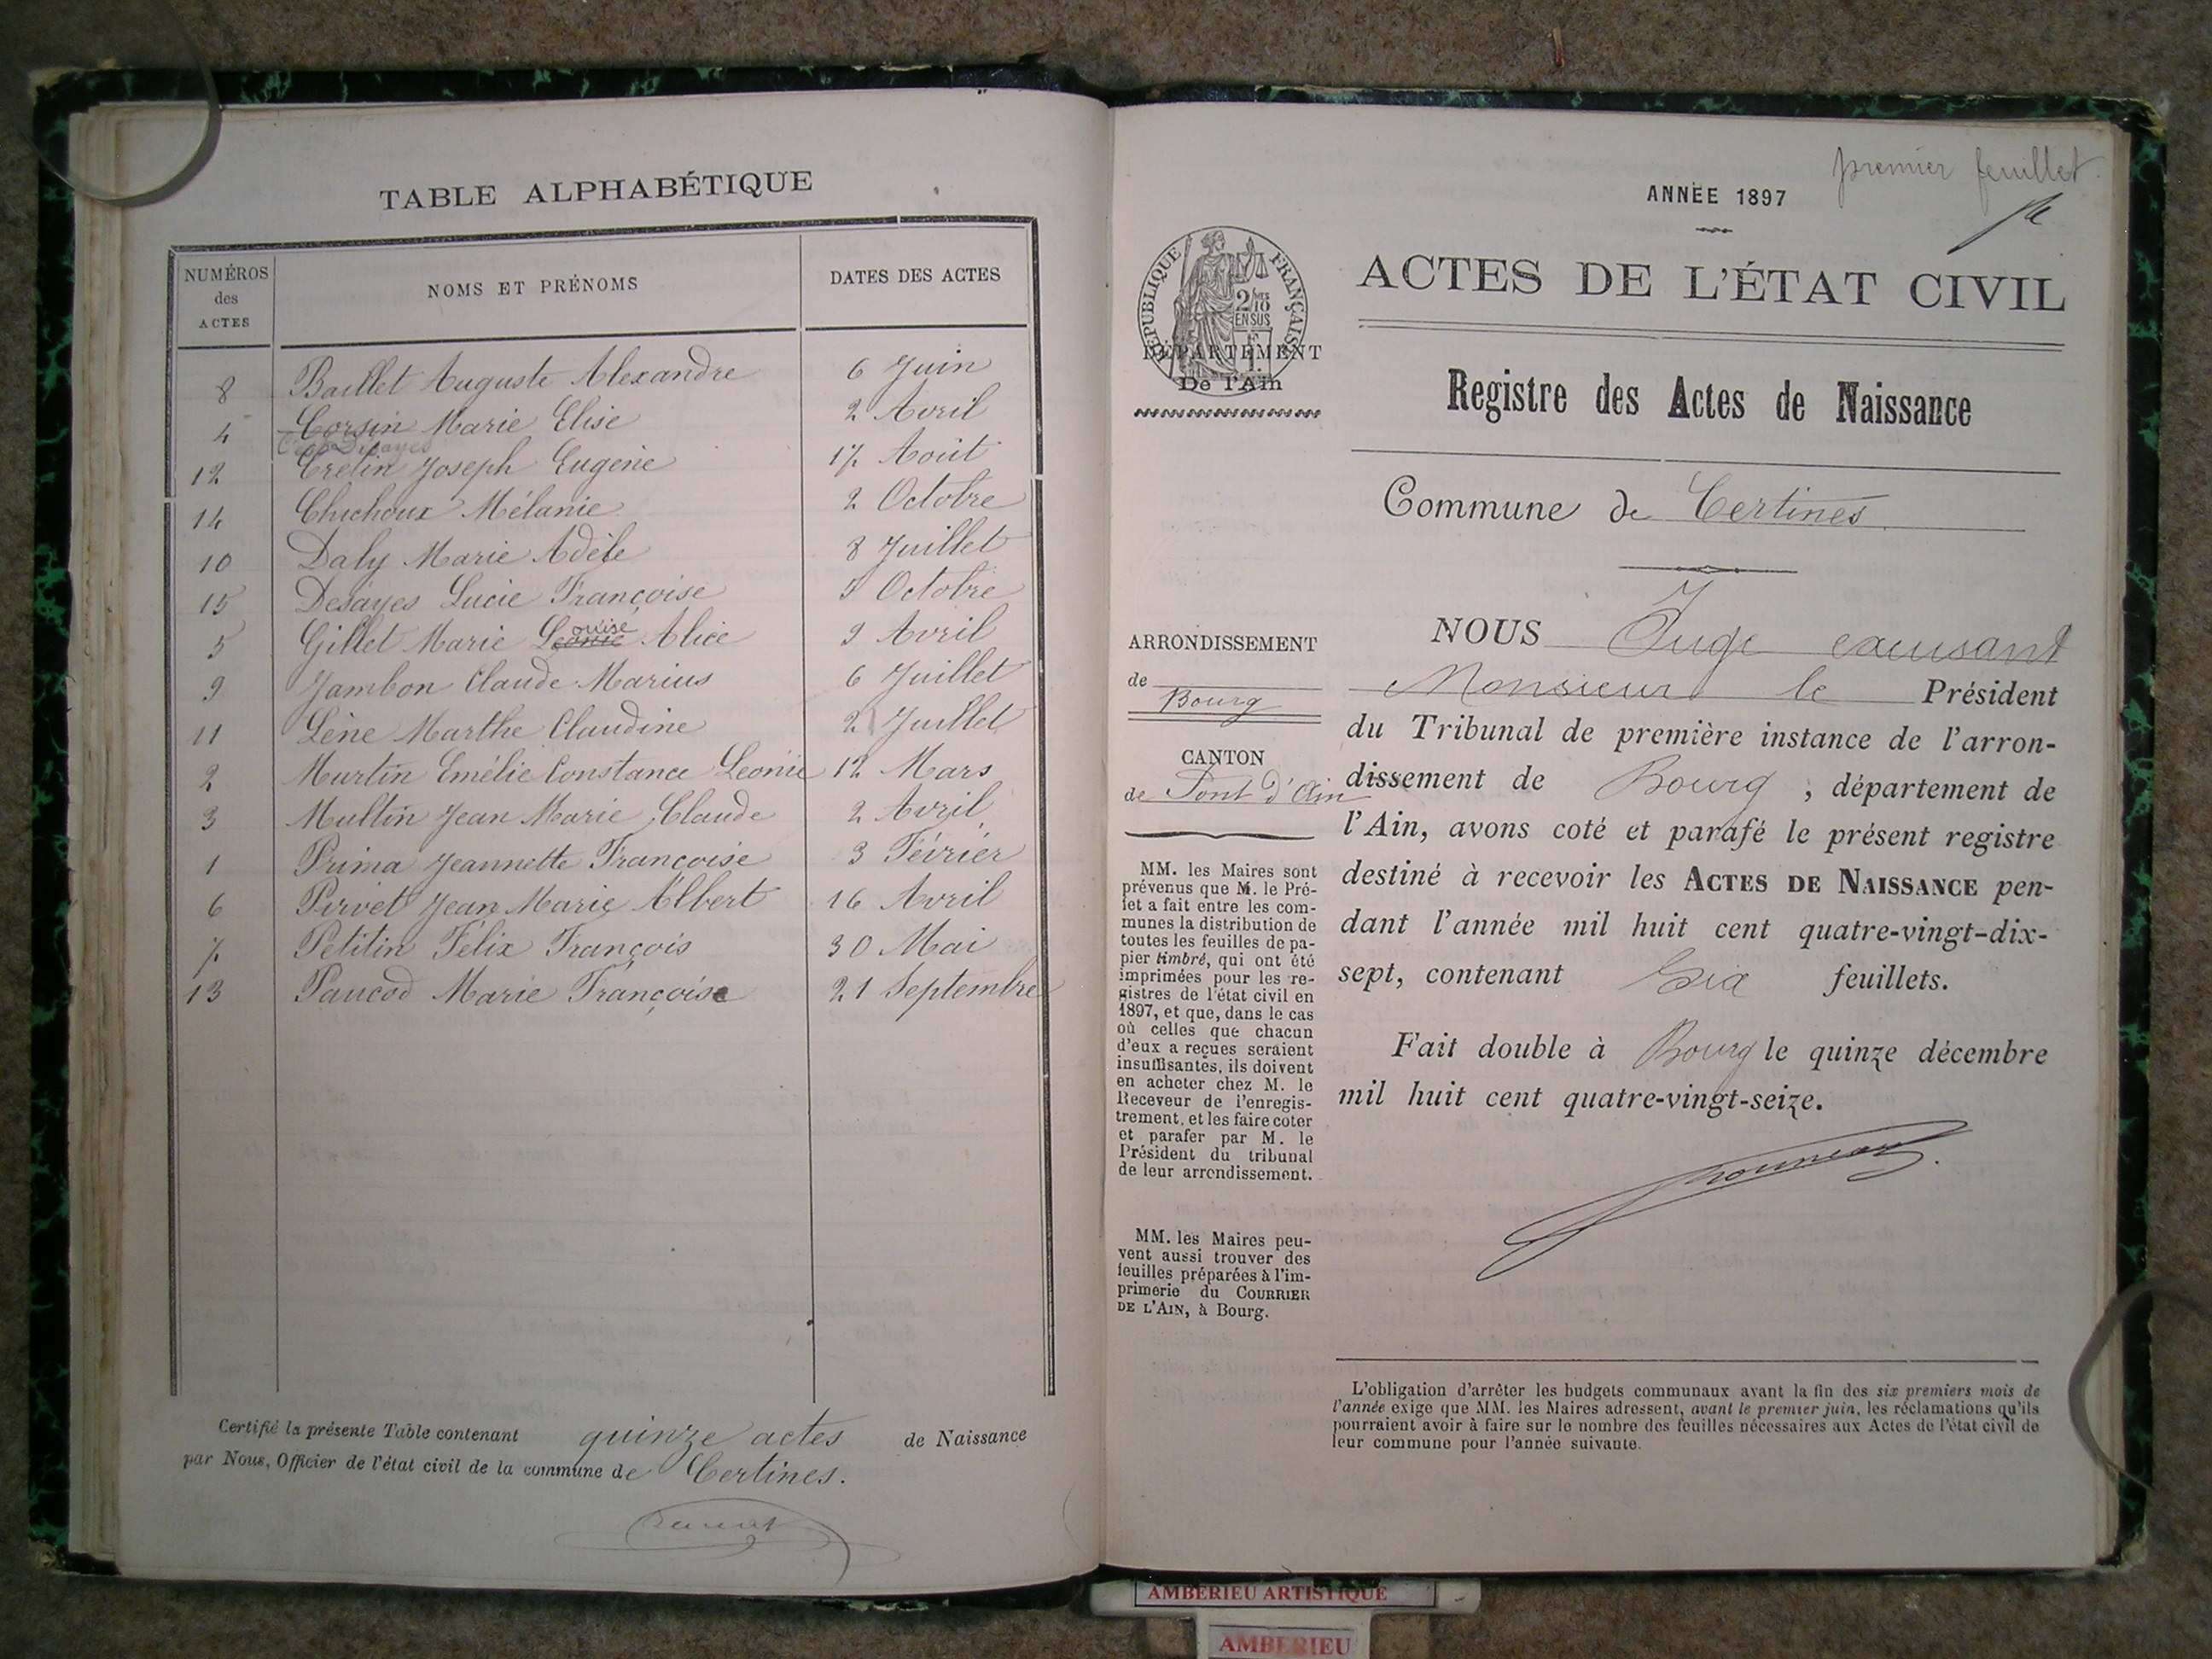 TABLE ALPHABÉTIQUE
NUMÉROS des ACTES NOMS ET PRÉNOMS DATES DES ACTES
8 Baillet Auguste Alexandre 6 Juin
4 Corsin Marie Elise 2 Avril
12 Cretin Joseph Eugene 17 Août
14 Chichoux Mélanie 2 Octobre
10 Daly Marie Adèle 8 Juillet
15 Desayes Lucie Françoise 5 Octobre
5 Gillet Marie Louise Alice 9 Avril
9 Jambon Claude Marius 6 Juillet
11 Lène Marthe Claudine 21 Juillet
2 Murtin Emélie Constance Leonie 12 Mars
3 Multin Jean Marie Claude 2 Avril
1 Prima Jeannette Françoise 3 Février
6 Pirvet Jean Marie Albert 16 Avril
7 Petitin Félix François 30 Mai
13 Paucod Marie Françoise 21 Septembre
Certifié la présente Table contenant quinze actes de Naissance
par Nous, Officier de l'état civil de la commune de Certines.
premier feuillet
ANNÉE 1897
RÉPUBLIQUE FRANÇAISE
2/10 EN SUS
DÉPARTEMENT
De l'Ain
ACTES DE L'ÉTAT CIVIL
Registre des Actes de Naissance
Commune de Certines
ARRONDISSEMENT
de
Bourg
CANTON
de Pont d'Ain
MM. les Maires sont
prévenus que M. le Pré-
fet a fait entre les com-
munes la distribution de
toutes les feuilles de pa-
pier timbré, qui ont été
imprimées pour les re-
gistres de l'état civil en
1897, et que, dans le cas
où celles que chacun
d'eux a reçues seraient
insuffisantes, ils doivent
en acheter chez M. le
Receveur de l'enregis-
trement, et les faire coter
et parafer par M. le
Président du tribunal
de leur arrondissement.
MM. les Maires peu-
vent aussi trouver des
feuilles préparées à l'im-
primerie du COURRIER
DE L'AIN, à Bourg.
NOUS Juge excusant
Monsieur le Président
du Tribunal de première instance de l'arron-
dissement de Bourg, département de
l'Ain, avons coté et parafé le présent registre
destiné à recevoir les ACTES DE NAISSANCE pen-
dant l'année mil huit cent quatre-vingt-dix-
sept, contenant Six feuillets.
Fait double à Bourg le quinze décembre
mil huit cent quatre-vingt-seize.
L'obligation d'arrêter les budgets communaux avant la fin des six premiers mois de
l'année exige que MM. les Maires adressent, avant le premier juin, les réclamations qu'ils
pourraient avoir à faire sur le nombre des feuilles nécessaires aux Actes de l'état civil de
leur commune pour l'année suivante.
AMBERIEU ARTISTIQUE
AMBERIEU